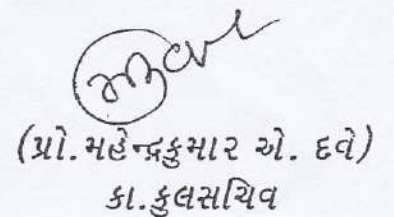 (પ્રો.મહેન્દ્રકુમાર એ. દવે)
કા.કુલસચિવ